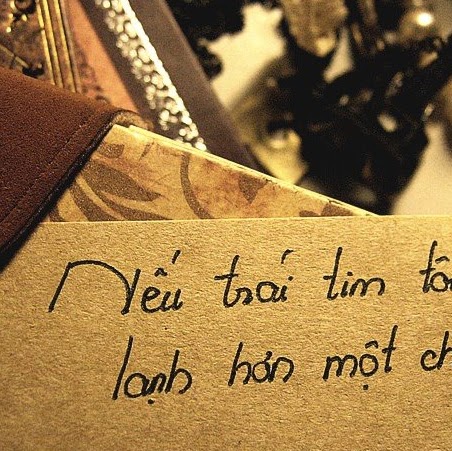 Nếu trái tim
lạnh hơn một